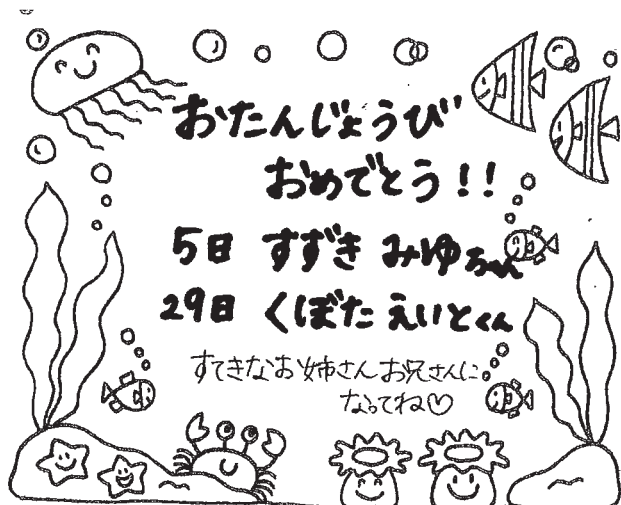 おたんじょうび
おめでとう!!
5日 すずき みゆちゃん
29日 くぼた えいとくん
すてきなお姉さんお兄さんに
なってね♡